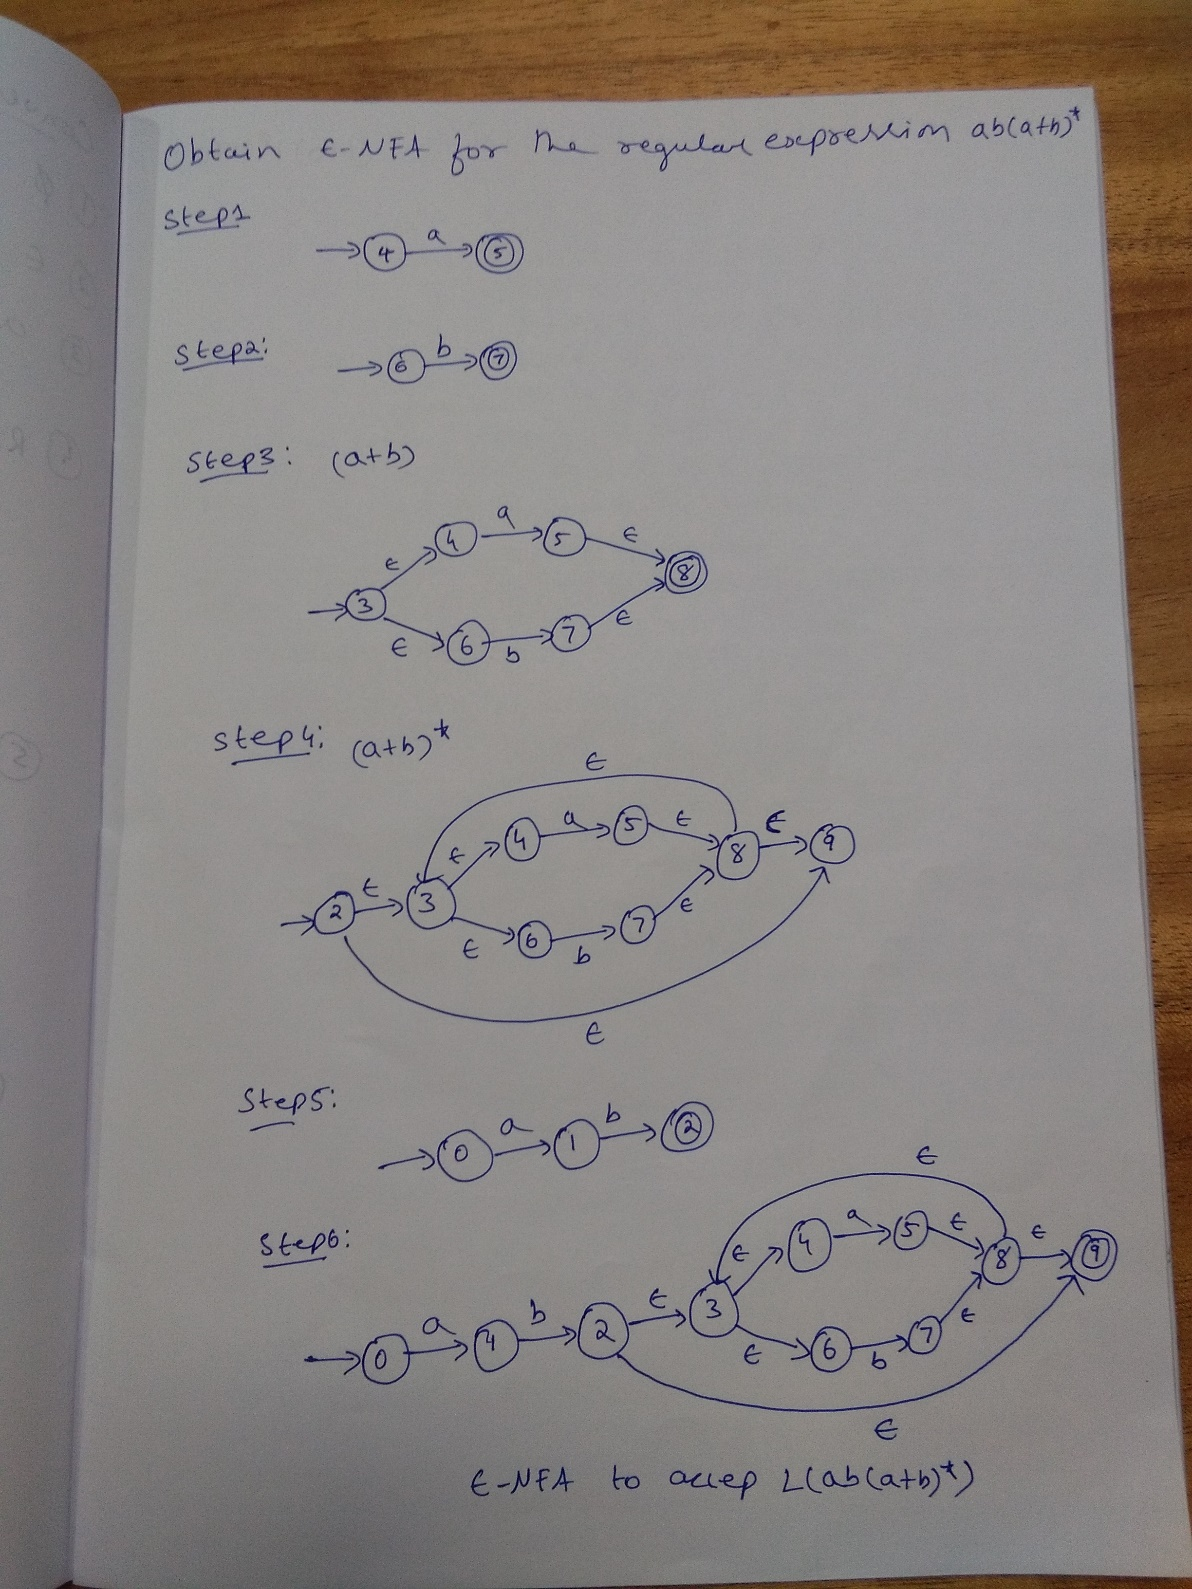 Obtain ε-NFA for the regular expression ab(a+b)*
Step1
4 a 5
Step2:
6 b 7
Step3: (a+b)
a
4 5 ε
ε 8
3
ε 6 b 7 ε
Step4: (a+b)*
ε
4 a 5 ε ε 9
ε 8
2 ε 3
ε 6 b 7 ε
ε
Step5:
0 a 1 b 2
Step6:
ε
4 a 5 ε ε 9
ε 8
0 a 4 b 2 ε 3
ε 6 b 7 ε
ε
ε-NFA to accep L(ab(a+b)*)